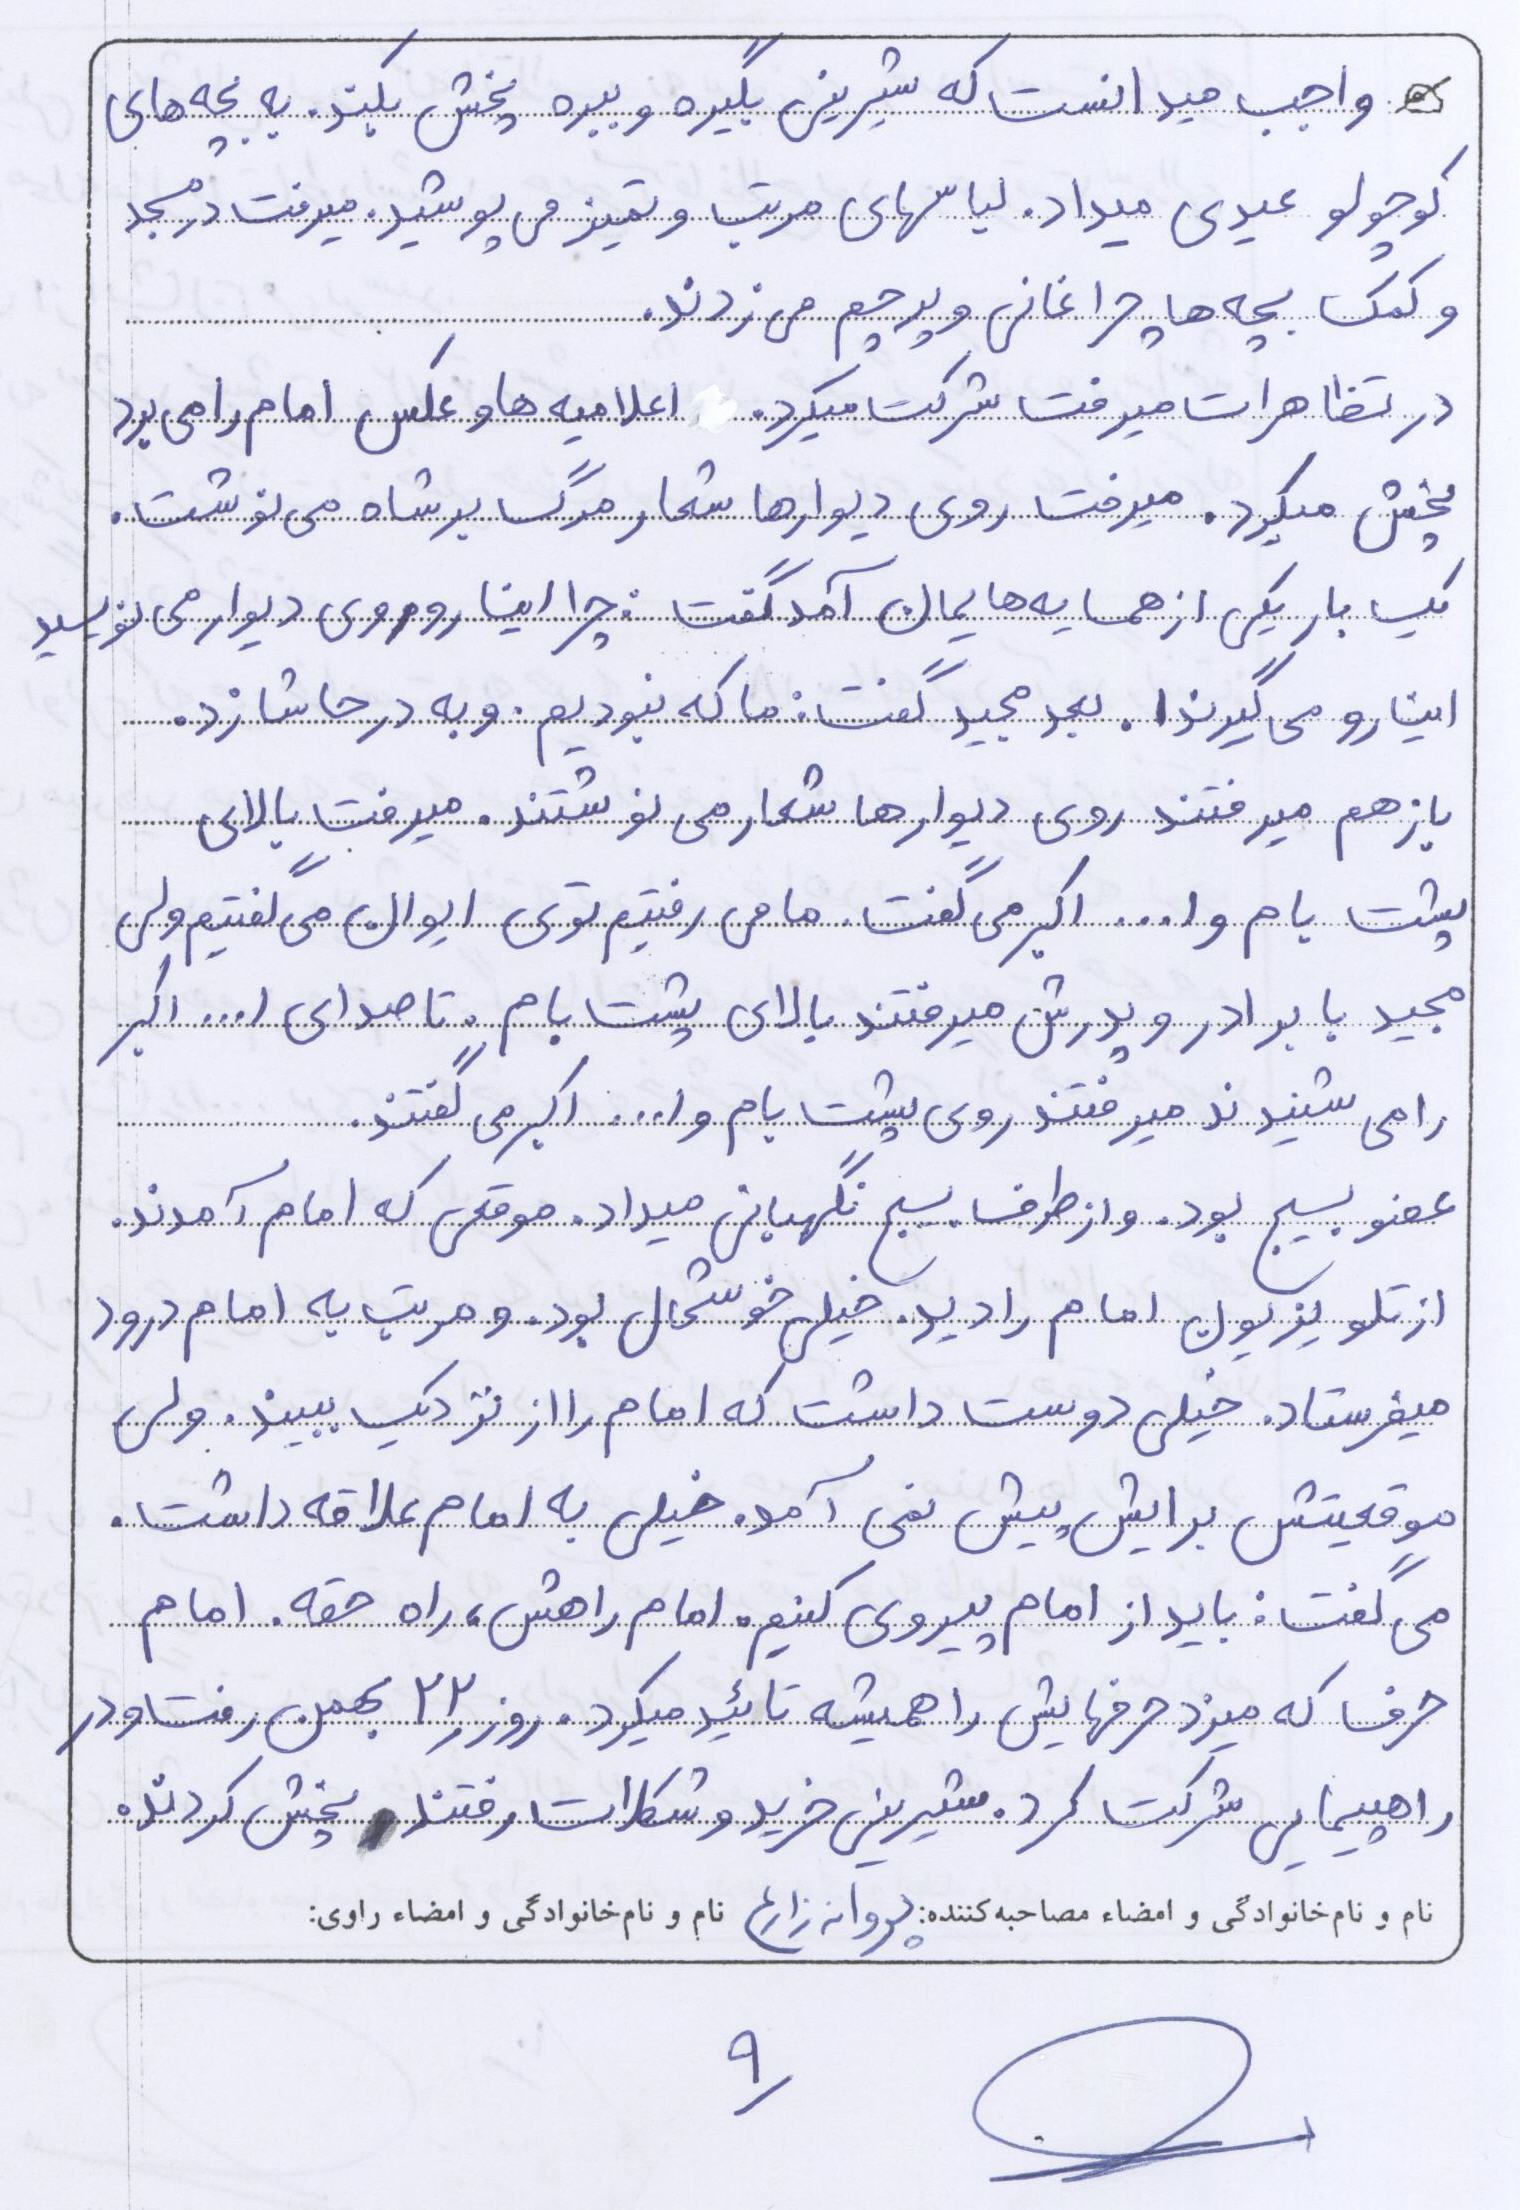 واجب میدانست که شیرینی بگیره و ببره پخش بکند. به بچه های
کوچولو عیدی میداد. لباسهای مرتب و تمیز می پوشید. میرفت در مسجد
و کمک بچه ها چراغانی و پرچم می زدند.
در تظاهرات میرفت شرکت میکرد. اعلامیه ها و عکس امام را می برد
پخش میکرد. میرفت روی دیوارها شعار مرگ بر شاه می نوشت.
یک بار یکی از همسایه هایمان آمد گفت: چرا اینا رو روی دیوار می نویسید
اینا رو می گیرند!. بعد مجید گفت: ما که نبودیم. و به در حاشا زد.
باز هم میرفتند روی دیوارها شعار می نوشتند. میرفت بالای
پشت بام و ا... اکبر می گفت. ما می رفتیم توی ایوان می گفتیم ولی
مجید با برادر و پدرش میرفتند بالای پشت بام. تا صدای ا... اکبر
را می شنیدند میرفتند روی پشت بام و ا... اکبر می گفتند.
عضو بسیج بود. و از طرف بسیج نگهبانی میداد. موقعی که امام آمدند.
از تلویزیون امام را دید. خیلی خوشحال بود. و مرتب به امام درود
میفرستاد. خیلی دوست داشت که امام را از نزدیک ببیند. ولی
موقعیتش برایش پیش نمی آمد. خیلی به امام علاقه داشت.
می گفت: باید از امام پیروی کنیم. امام راهش، راه حقه. امام
حرف که میزد حرفهایش را همیشه تائید میکرد. روز ۲۲ بهمن رفت و در
راهپیمایی شرکت کرد. شیرینی خرید و شکلات رفتند پخش کردند.
نام و نام خانوادگی و امضاء مصاحبه کننده: پروانه زارع نام و نام خانوادگی و امضاء راوی:
۹